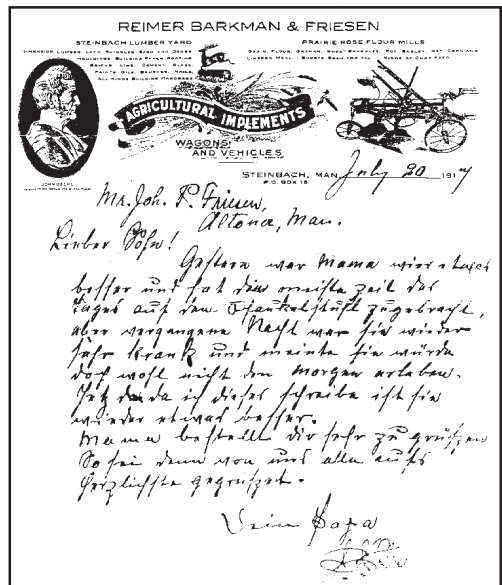 REIMER BARKMAN & FRIESEN
STEINBACH LUMBER YARD
PRAIRIE ROSE FLOUR MILLS
AGRICULTURAL IMPLEMENTS
WAGONS
AND VEHICLES
JOHN DEERE
STEINBACH, MAN. July 20 1917
P.O. BOX 15
Mr. Joh. P. Friesen,
Altona, Man.
Lieber Sohn!
Gestern war Mama wieder etwas
besser und hat die meiste Zeit des
Tages auf dem Schaukelstuhl zugebracht,
aber vergangene Nacht war sie wieder
sehr krank und meinte sie würde
doch wohl nicht den Morgen erleben.
Jetzt da ich dieses schreibe ist sie
wieder etwas besser.
Mama bestellt dir sehr zu grüszen
So sei denn von uns alle aufs
herzlichste gegrüszet.
Dein Papa